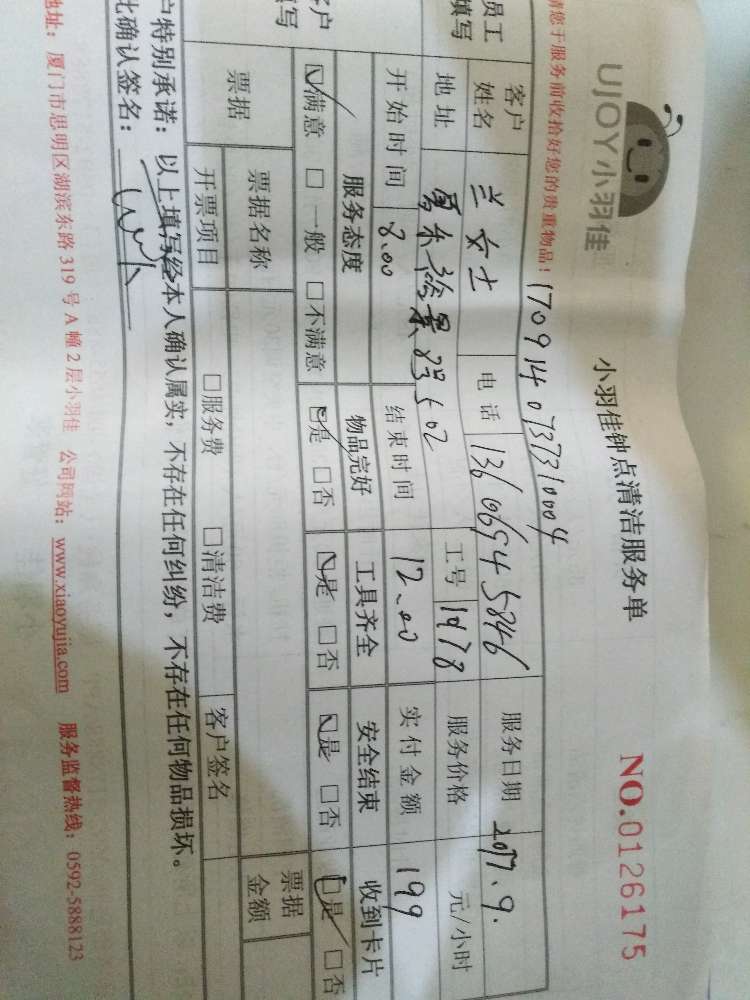 UJOY小羽佳
小羽佳钟点清洁服务单
NO.0126175
请您于服务前收拾好您的贵重物品！
1709140737310004
员工填写
客户姓名 兰女士 电话 13606945846 服务日期 2017.9.
地址 502 工号 1978 服务价格 元/小时
开始时间 8.00 结束时间 12.00 实付金额 199
客户填写
服务态度 物品完好 工具齐全 安全结束 收到卡片
☑满意 □一般 □不满意 ☑是 □否 ☑是 □否 ☑是 □否 ☑是 □否
票据 票据名称 票据金额
开票项目 □服务费 □清洁费 客户签名
户特别承诺：以上填写经本人确认属实，不存在任何纠纷，不存在任何物品损坏。
此确认签名：
地址：厦门市思明区湖滨东路319号A幢2层小羽佳 公司网站：www.xiaoyujia.com 服务监督热线：0592-5888123